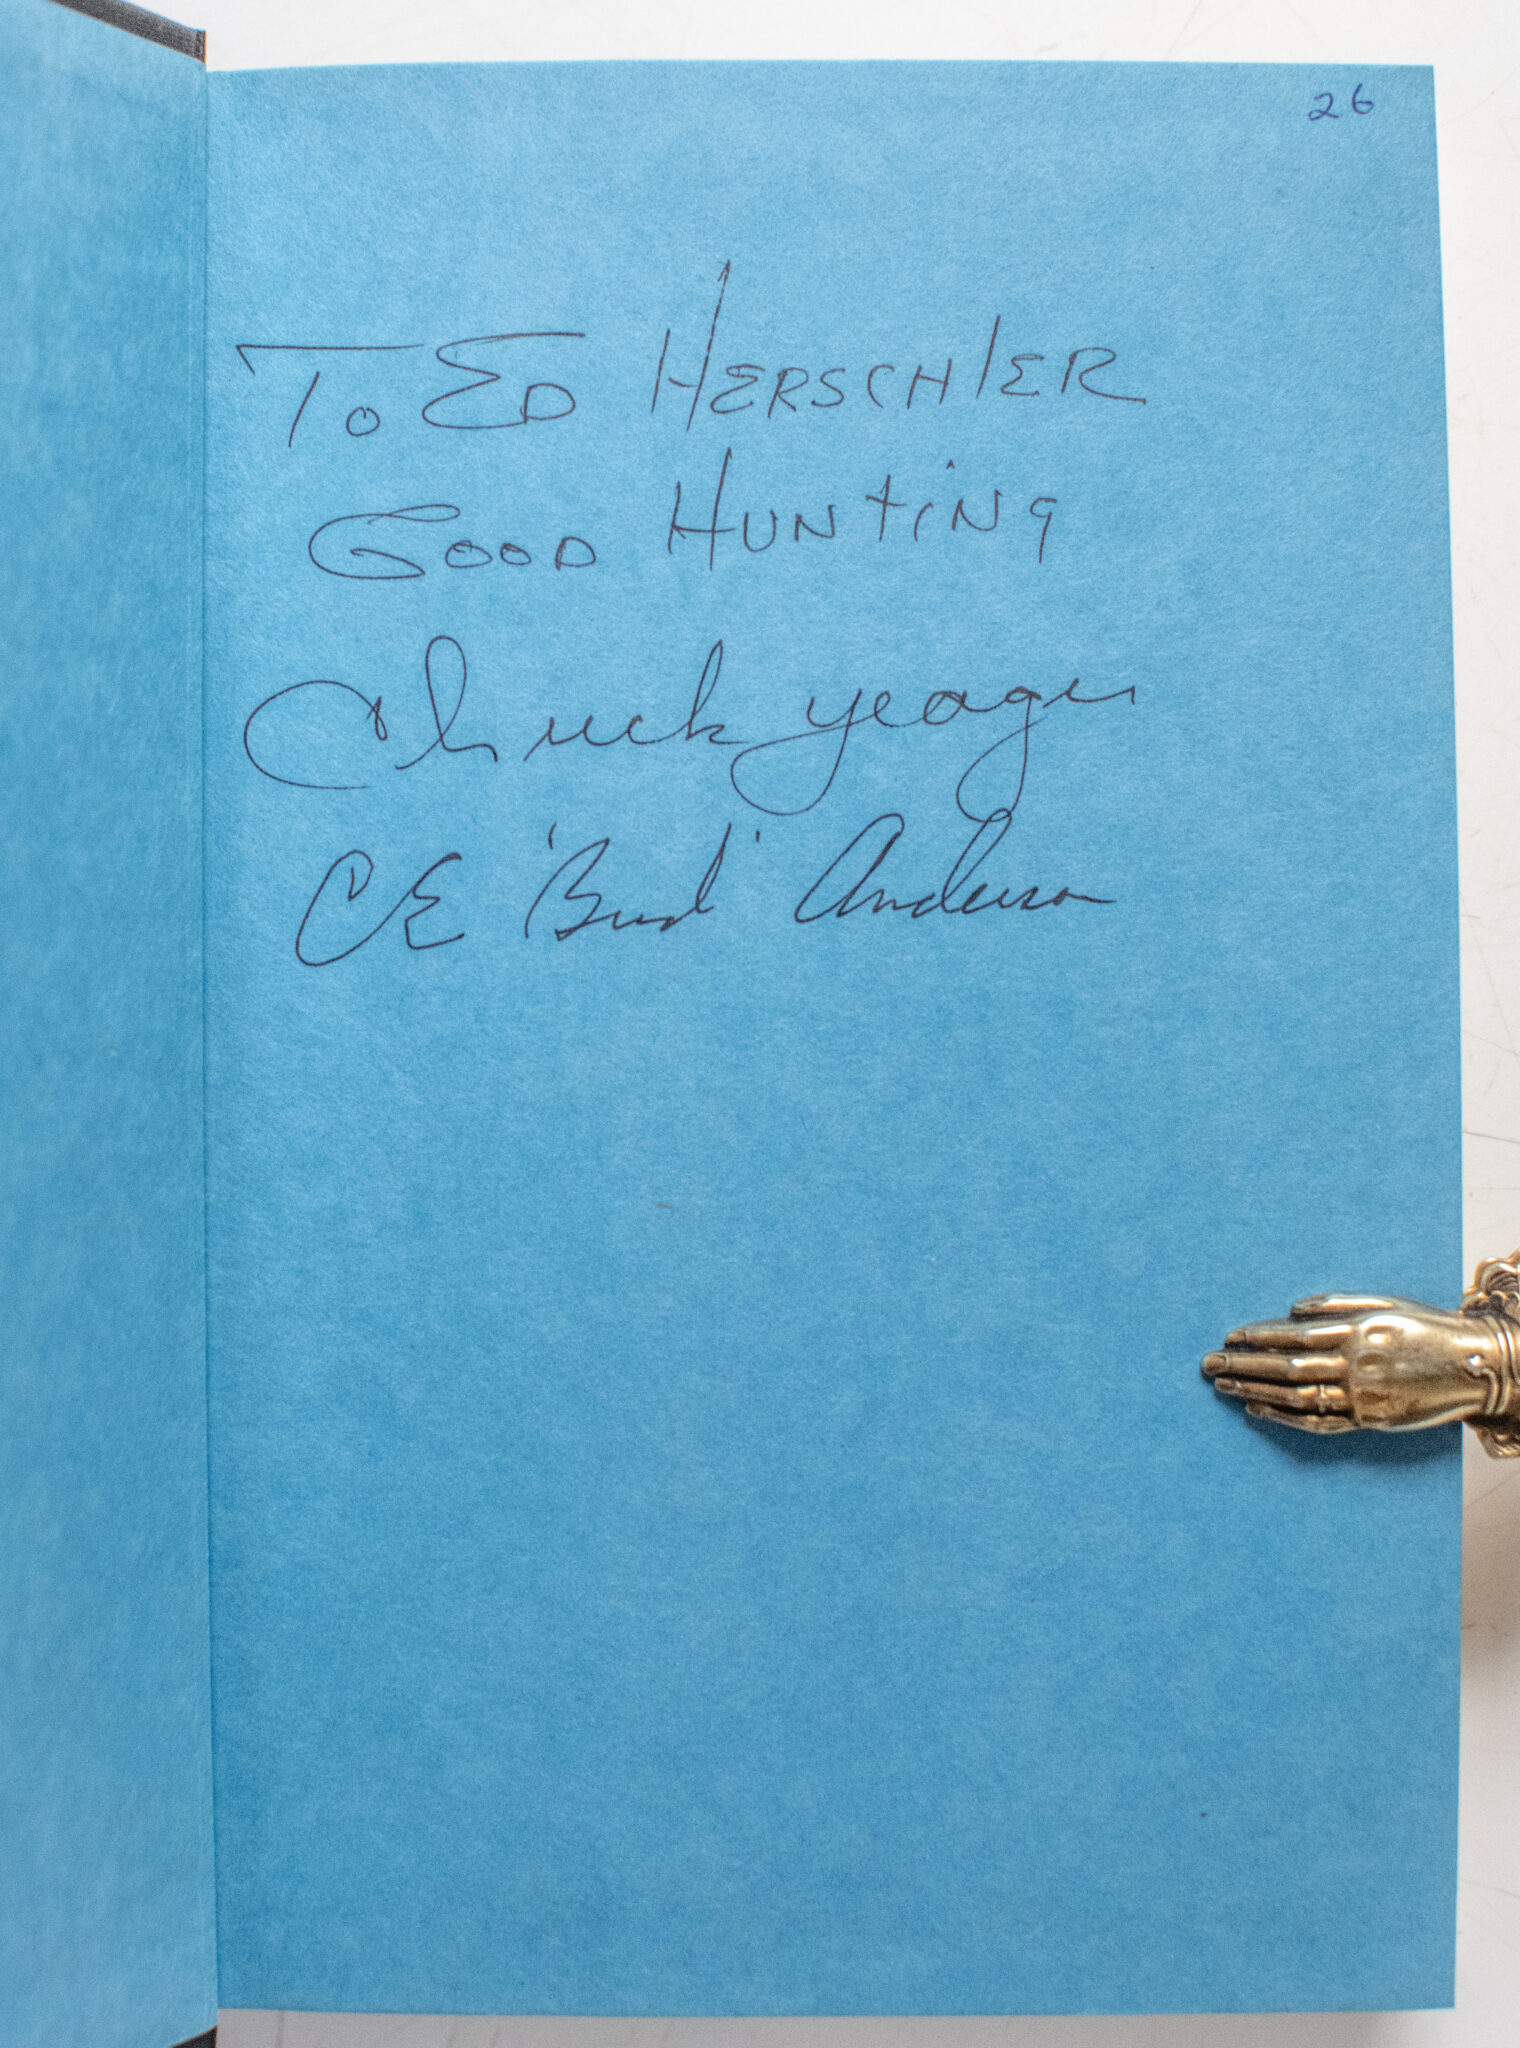 26
To ED HERSCHlER
GOOD HUNTiNg
Chuck yeager
CE 'Bud' Anderson